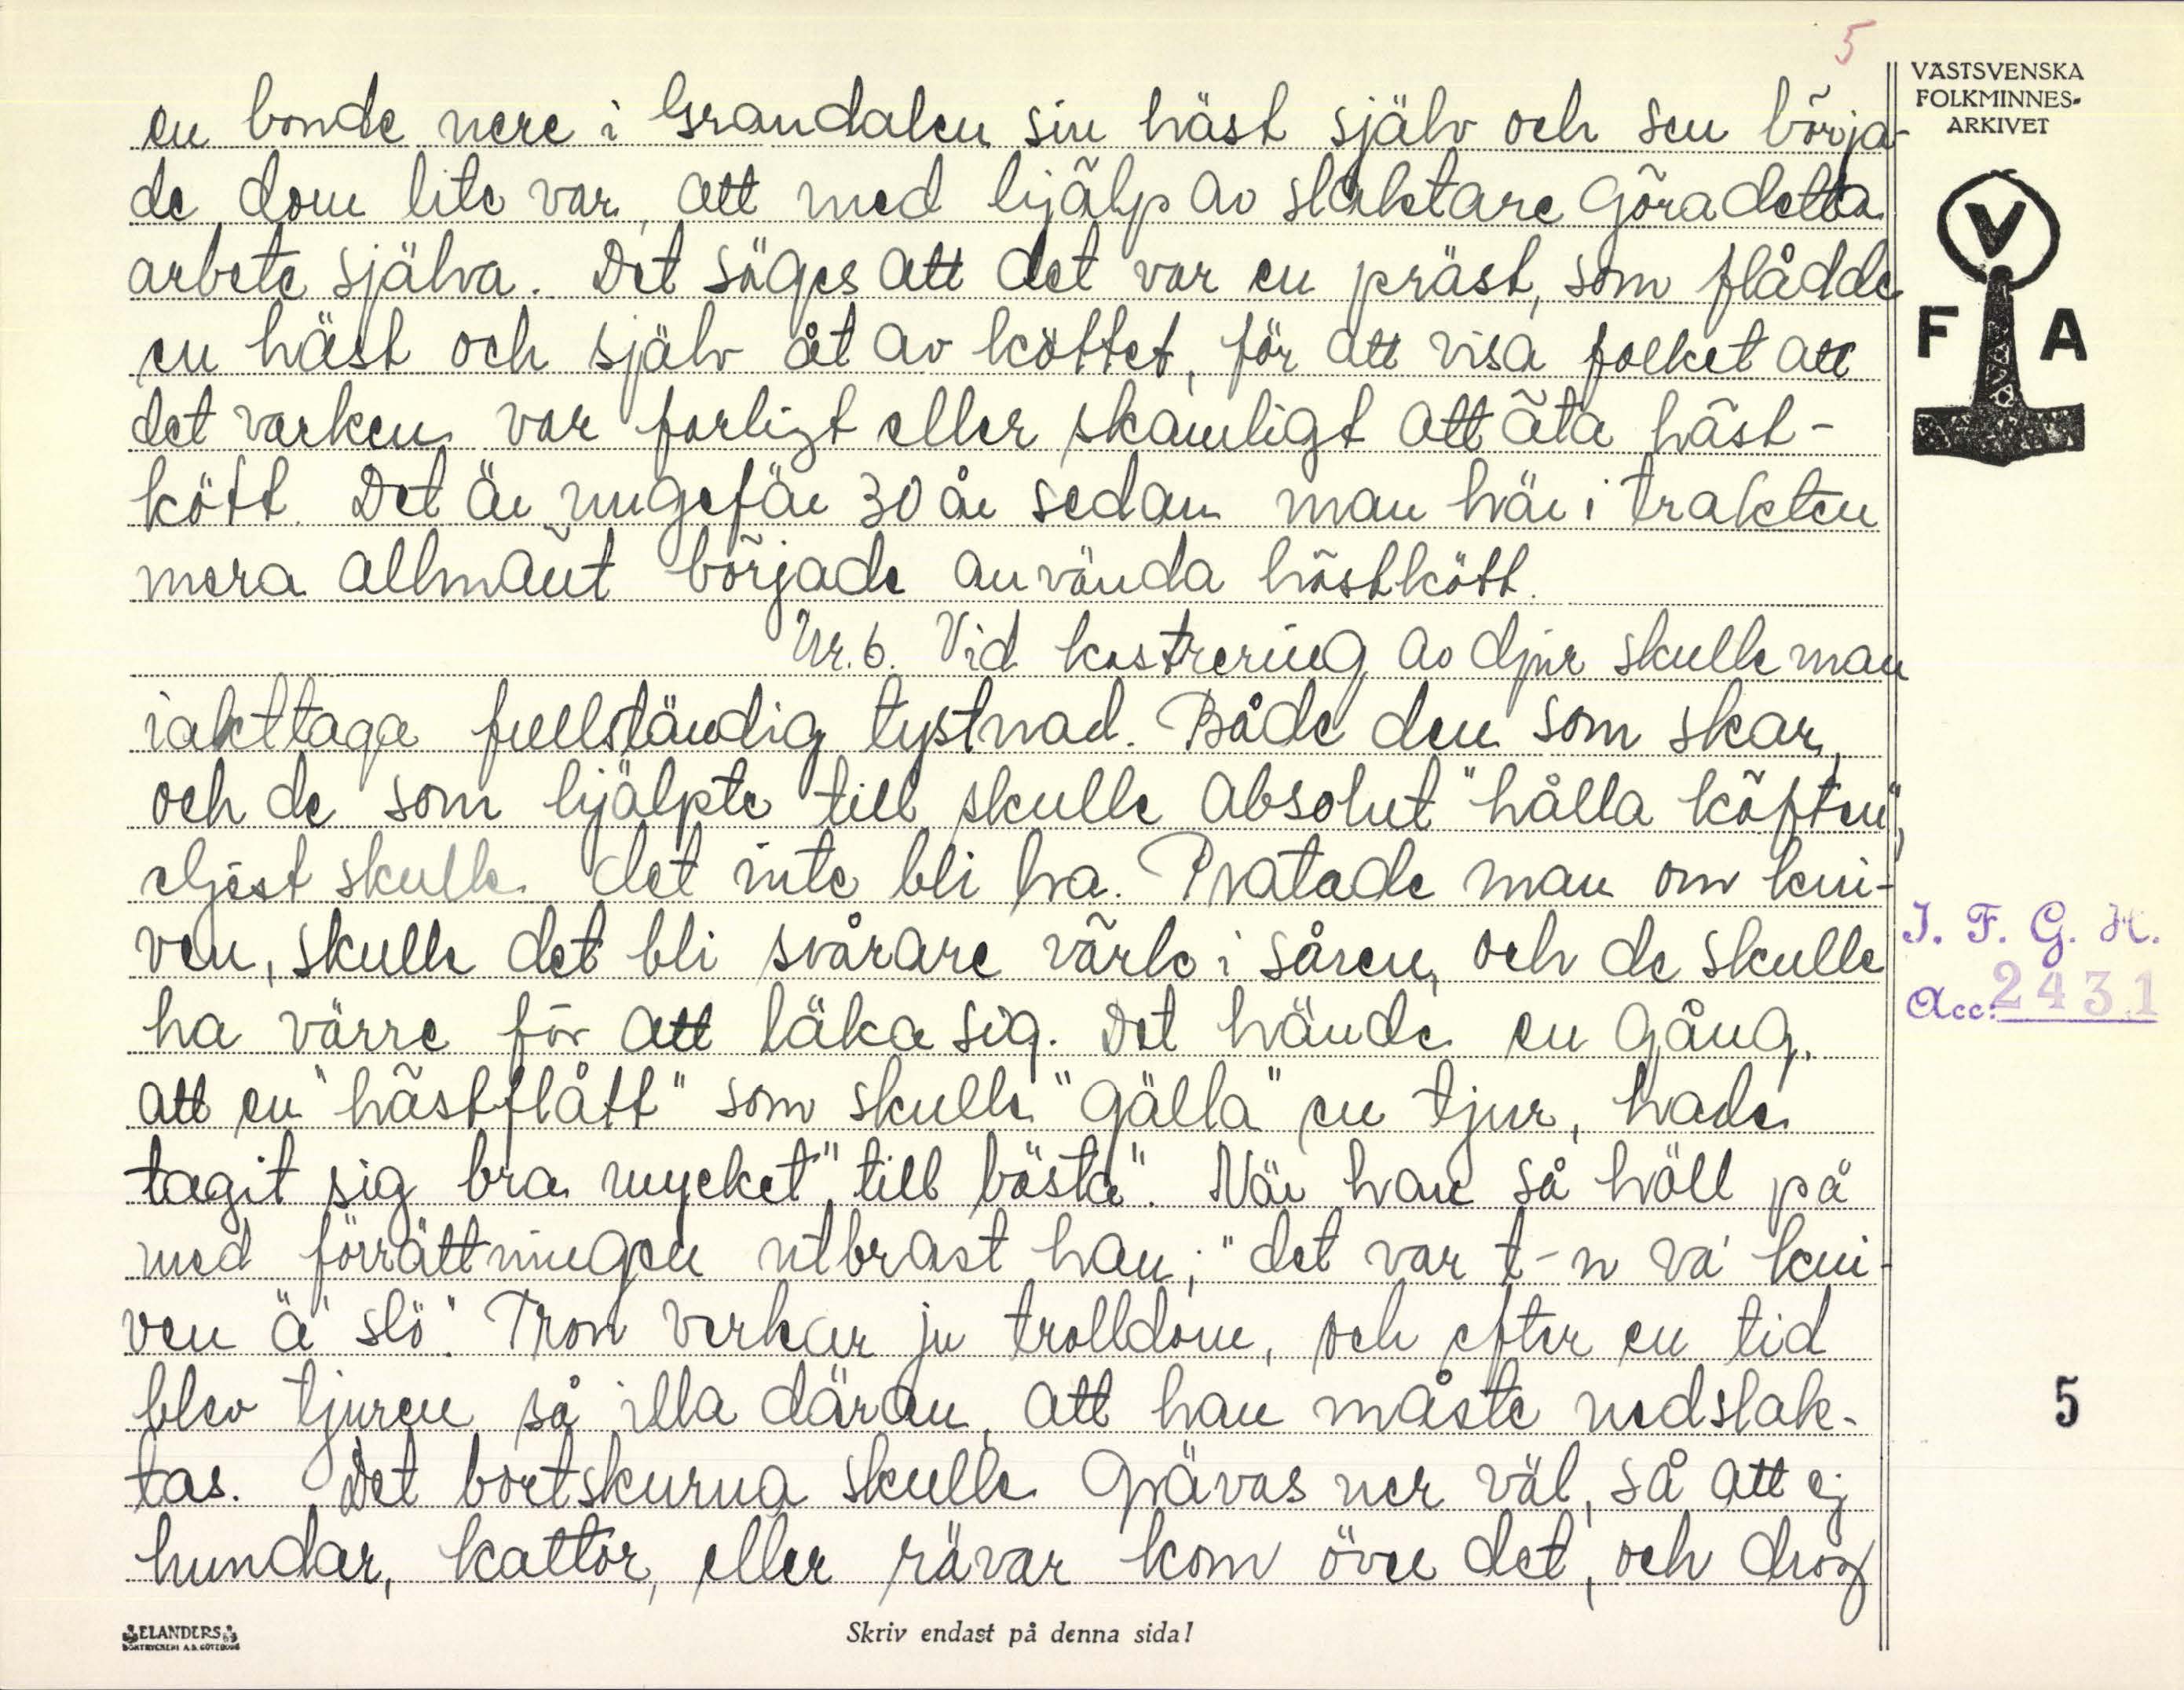 5
VÄSTSVENSKA
FOLKMINNES-
ARKIVET
V
F A
en bonde nere i Grandalen sin häst själv och sen börja-
de dom lite var, att med hjälp av slaktare göra detta
arbete själva. Det säges att det var en präst, som flådde
en häst och själv åt av köttet, för att visa folket att
det varken var farligt eller skamligt att äta häst-
kött. Det är ungefär 30 år sedan man här i trakten
mera allmänt började använda hästkött.
Nr. 6. Vid kastrering av djur skulle man
iakttaga fullständig tystnad. Både den som skar,
och de som hjälpte till skulle absolut "hålla käften",
eljest skulle det inte bli bra. Pratade man om kni-
ven, skulle det bli svårare värk i såren, och de skulle
ha värre för att läka sig. Det hände en gång,
att en "hästflått" som skulle "gälla" en tjur, hade
tagit sig bra mycket "till bästa". När han så höll på
med förrättningen utbrast han; "det var t-n va' kni-
ven ä' slö". Tron verkar ju trolldom, och efter en tid
blev tjuren så illa däran, att han måste nedslak-
tas. Det bortskurna skulle grävas ner väl, så att ej
hundar, kattor, eller rävar kom över det, och drog
I. F. G. H.
Acc. 2431
5
ELANDERS
BOKTRYCKERI A.B. GÖTEBORG
Skriv endast på denna sida!